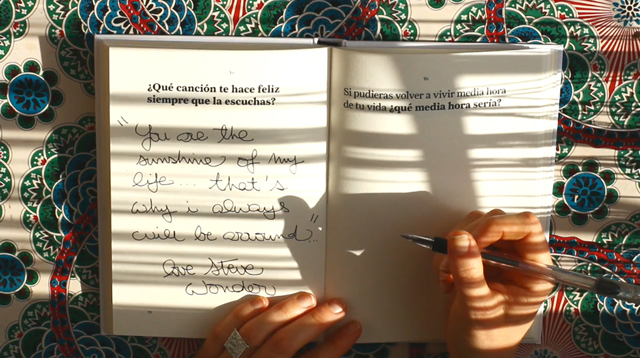 ¿Qué canción te hace feliz
siempre que la escuchas?
"You are the
sunshine of my
life... that's
why i always
will be around"...
love Steve
Wonder
Si pudieras volver a vivir media hora
de tu vida ¿qué media hora sería?